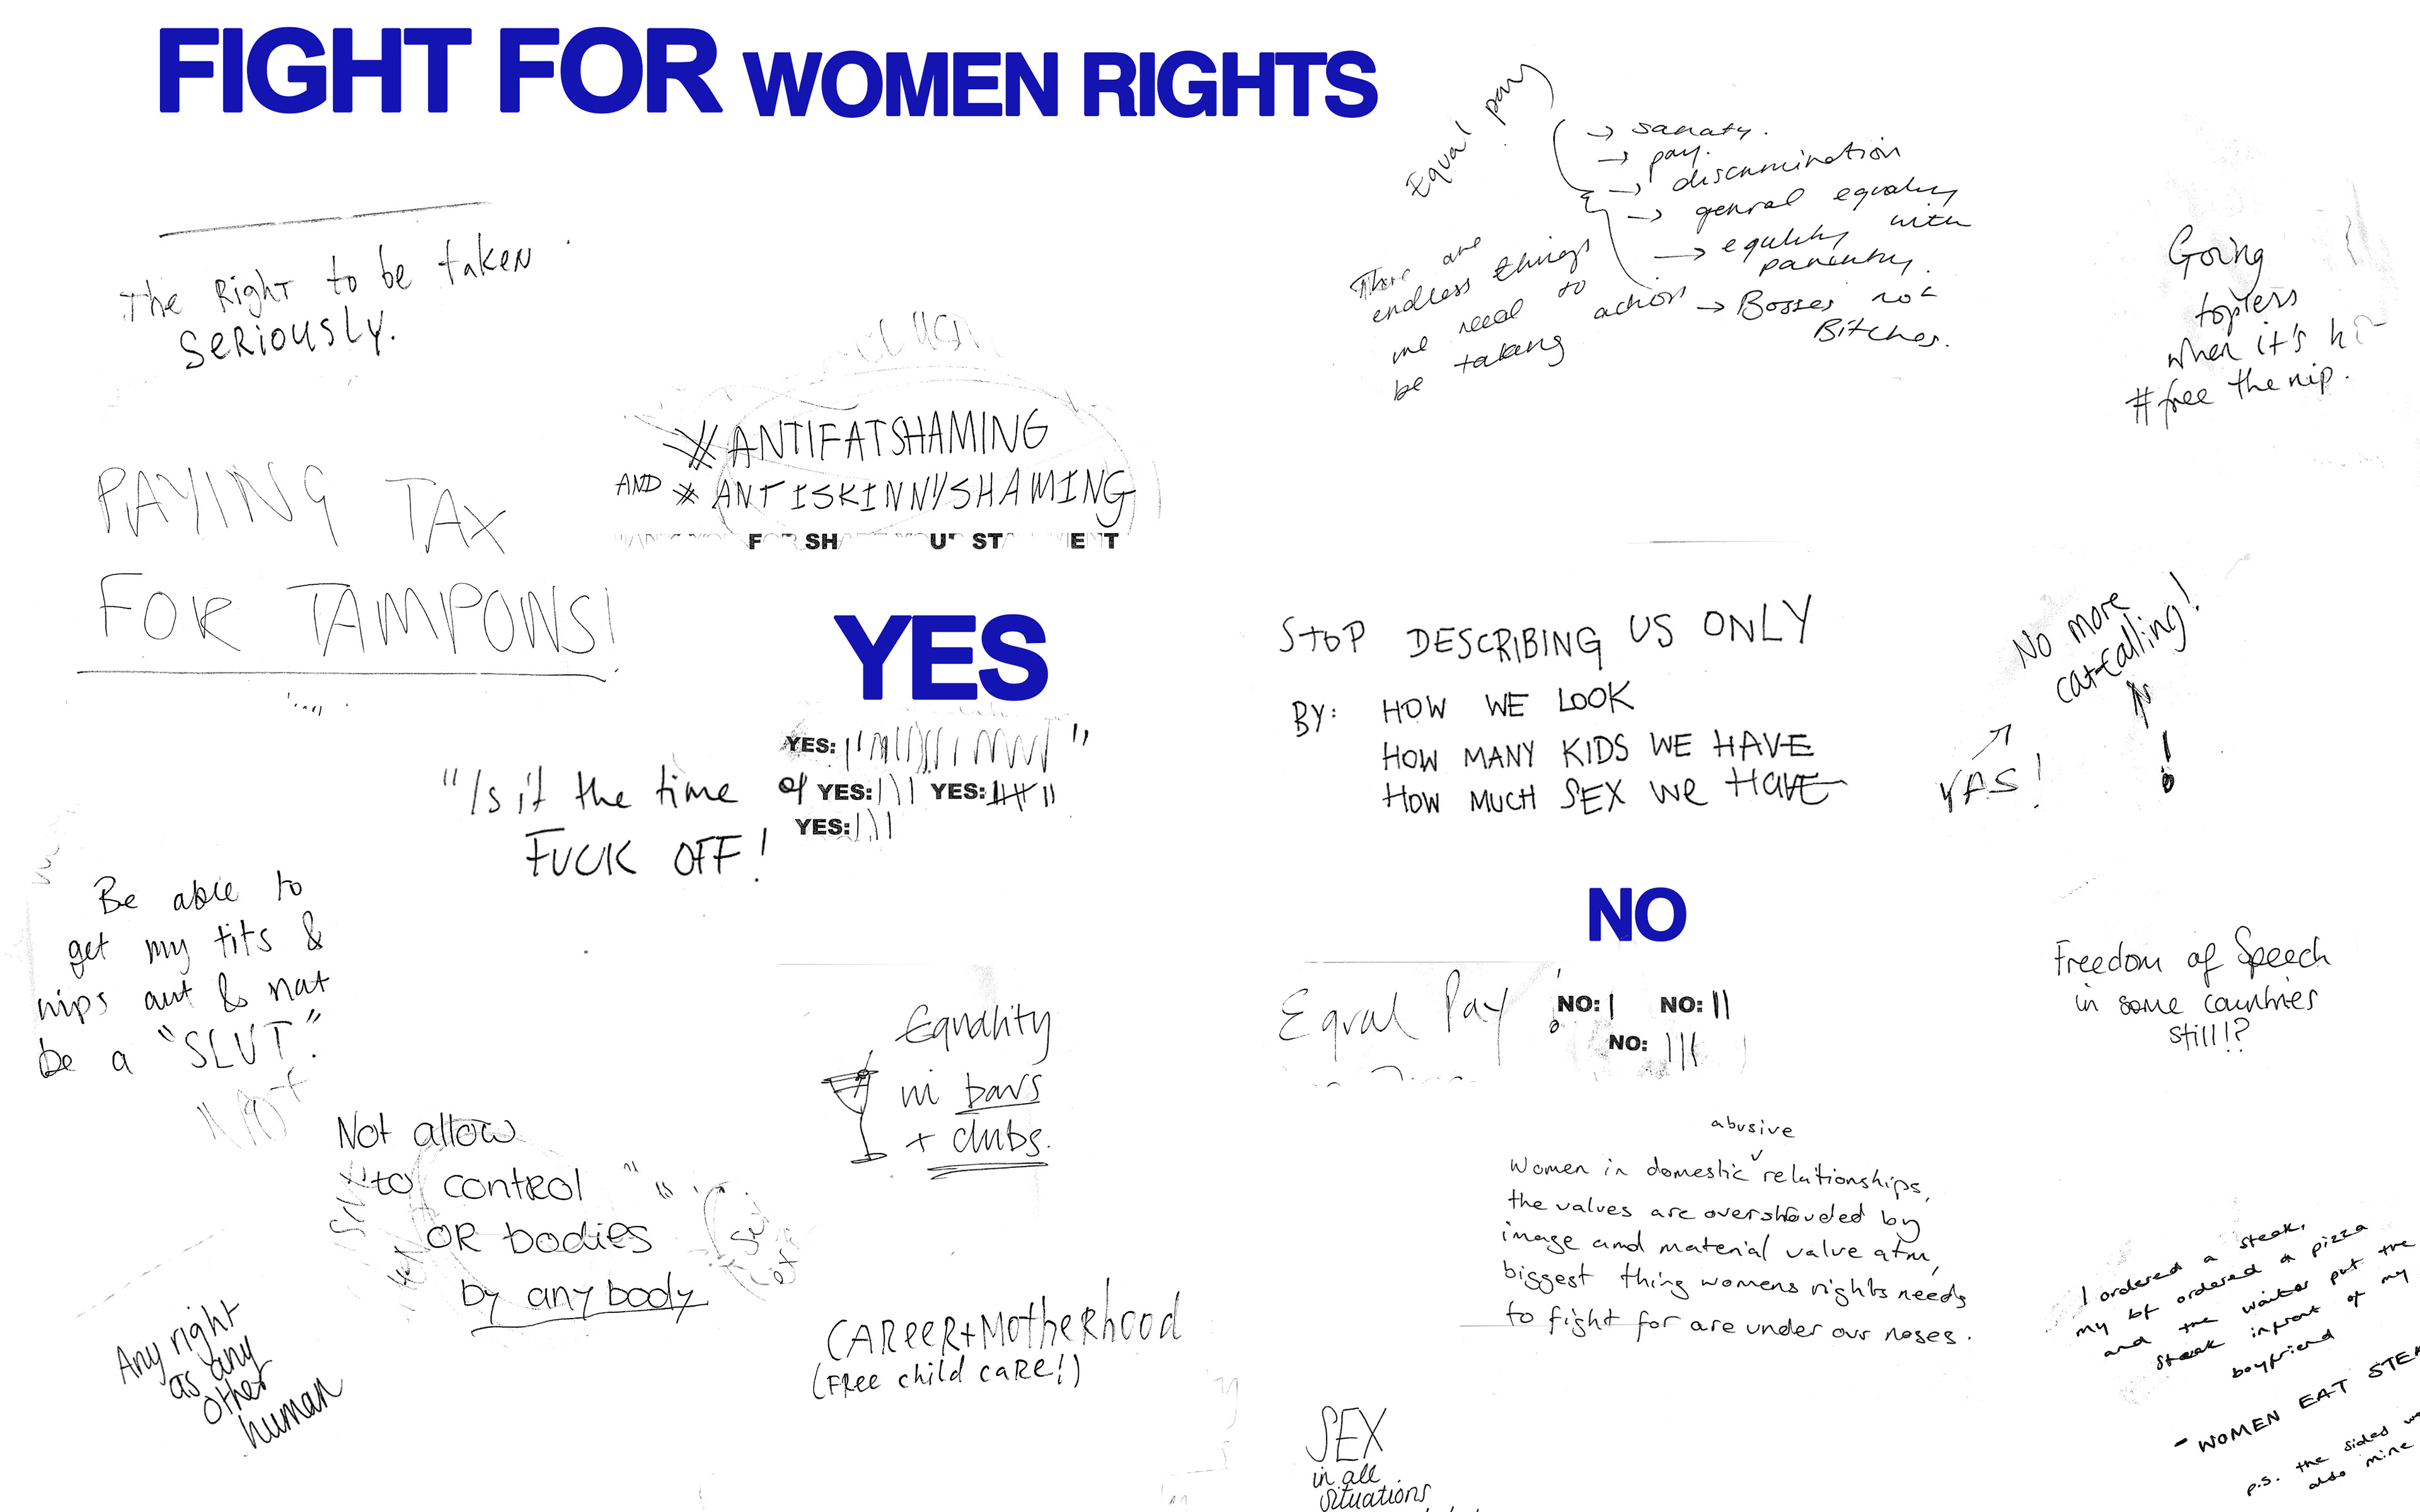 FIGHT FOR WOMEN RIGHTS
The Right to be taken
SERIOUSLY.
Equal pay
→ sanaty.
→ pay.
→ discrimination
→ genral equality
→ equality with
parentry.
→ Bosses not
Bitches.
There are
endless things
we need to
be taking action
Going
topless
when it's
#free the nip.
#ANTIFATSHAMING
AND #ANTISKINNYSHAMING
PAYING TAX
FOR TAMPONS!
YES
YES:
"Is it the time of YES: YES:
YES:
FUCK OFF!
STOP DESCRIBING US ONLY
BY: HOW WE LOOK
HOW MANY KIDS WE HAVE
HOW MUCH SEX WE HAVE
No more
cat-calling!
YAS!
Be able to
get my tits &
nips out & not
be a "SLUT."
NOT
NO
Equal Pay NO: NO:
NO:
Freedom of Speech
in some countries
still!?
Equality
in bars
+ clubs.
Not allow
to control
OR bodies
by any body
abusive
Women in domestic relationships,
the values are overshrouded by
image and material value atm,
biggest thing womens rights needs
to fight for are under our noses.
Any right
as any
other
human
CAREER+MOTHERHOOD
(FREE child care!)
I ordered a steak,
my bf ordered a pizza
and the waiter put the
steak infront of my
boyfriend
- WOMEN EAT
p.s. the sides
also mine
SEX
in all
situations